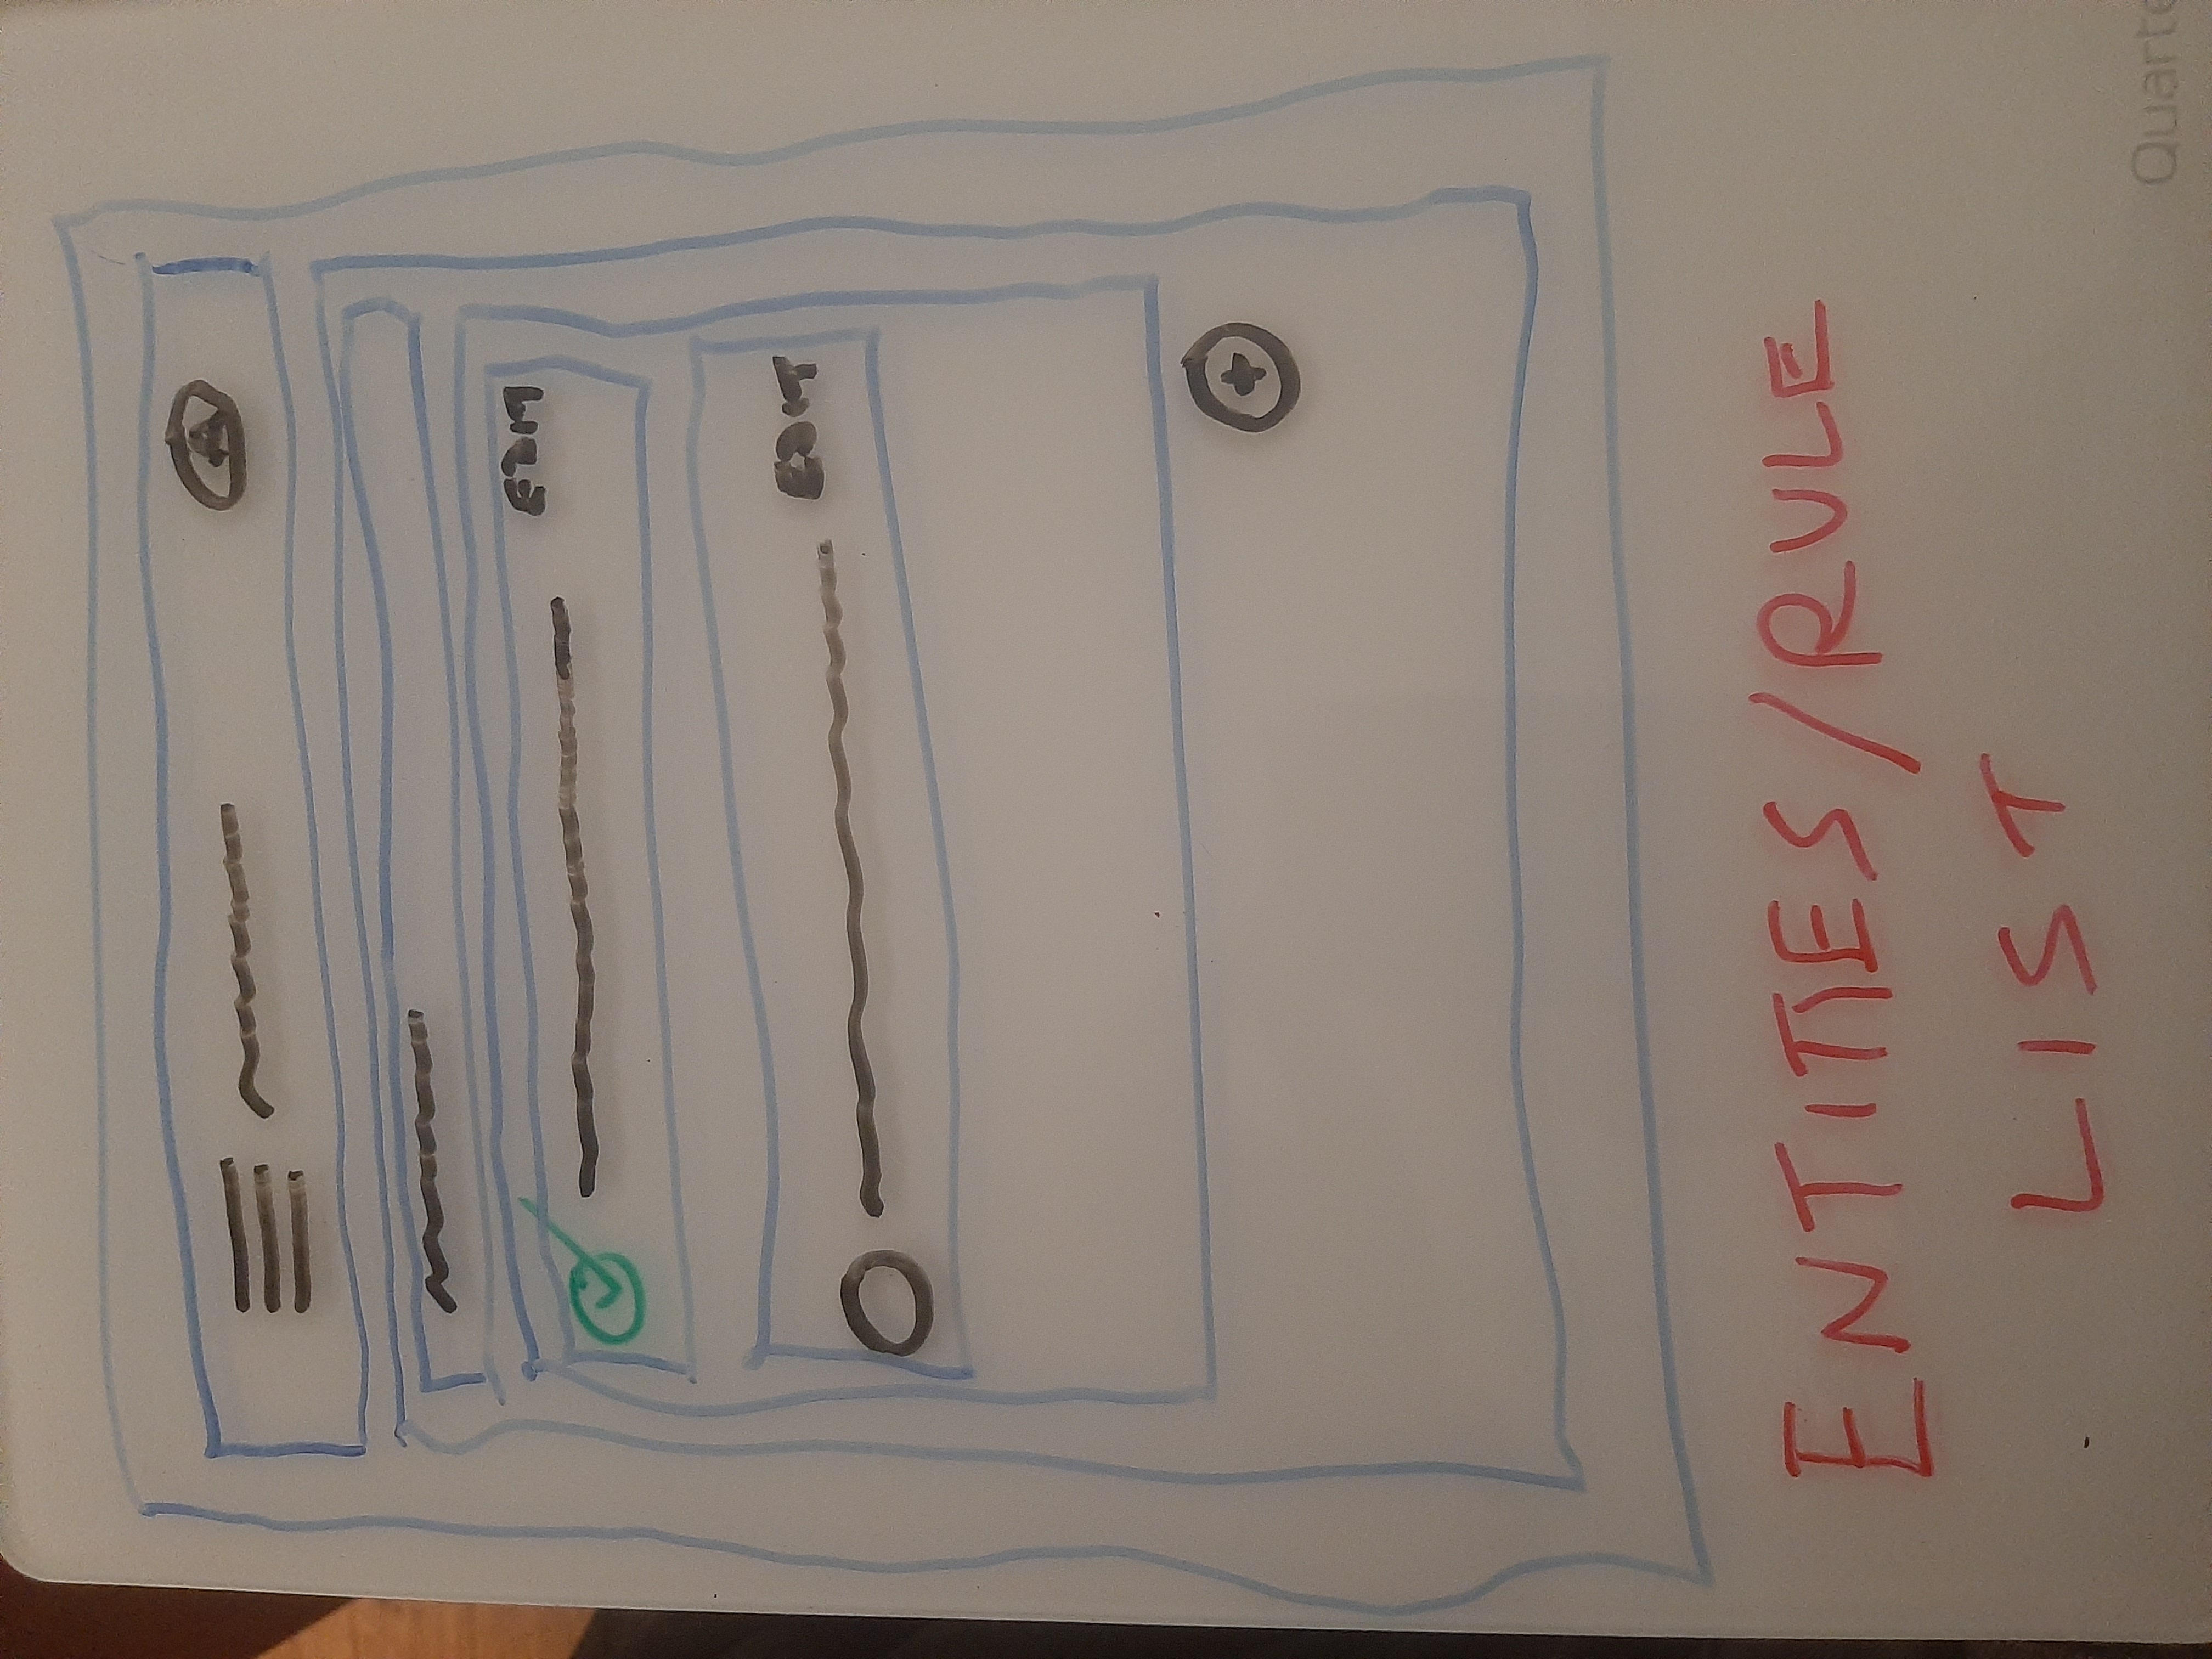 A
EDIT
EDIT
ENTITIES/RULE
LIST
Quarte